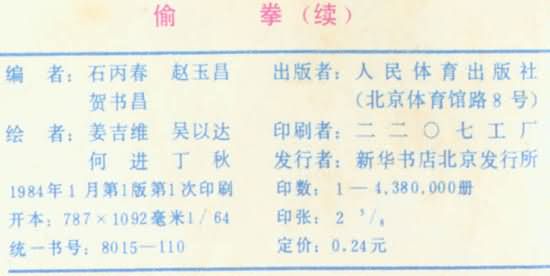 偷 拳（续）
编 者：石丙春 赵玉昌 出版者：人民体育出版社
贺书昌 （北京体育馆路8号）
绘 者：姜吉维 吴以达 印刷者：二二〇七工厂
何 进 丁 秋 发行者：新华书店北京发行所
1984年1月第1版第1次印刷 印数：1—4,380,000册
开本：787×1092毫米1/64 印张：2 3/8
统一书号：8015—110 定价：0.24元